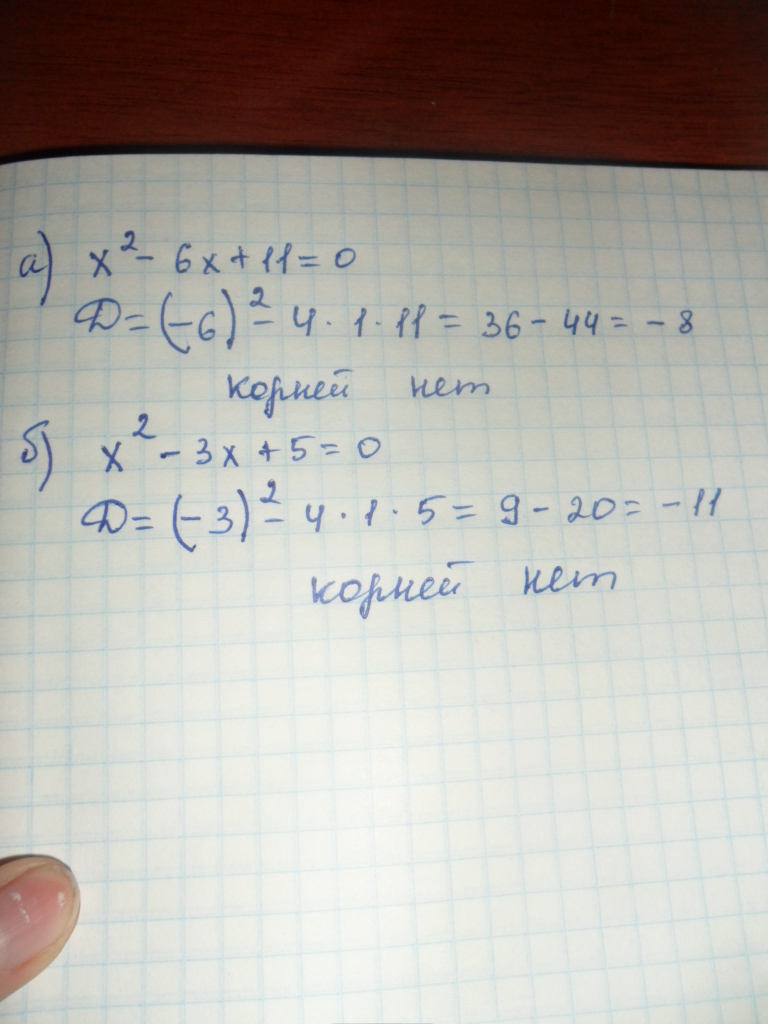 а) x² - 6x + 11 = 0
Д = (-6)² - 4 · 1 · 11 = 36 - 44 = - 8
корней нет
б) x² - 3x + 5 = 0
Д = (-3)² - 4 · 1 · 5 = 9 - 20 = - 11
корней нет